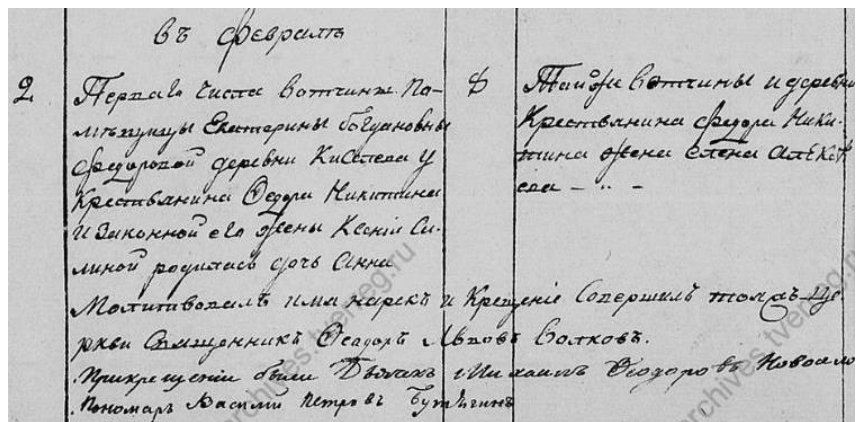 въ Февралѣ
2 Перваго числа вотчины По-
мѣщицы Екатерины Богдановны
Федоровой деревни Киселева у
Крестьянина Ѳедора Никитина
и законной его жены Ксеніи Си-
линой родилась дочь Анна
8 Той же вотчины и деревни
Крестьянина Федора Ники-
тина жена Елена Алекс
ѣева – „ –
Молитвовалъ имя нарекъ и Крещеніе Совершилъ тояжъ Це
ркви Священникъ Ѳеодоръ Львовъ Волковъ.
При крещеніи были Дьячекъ Михаилъ Ѳеодоровъ
Пономарь Василий Петровъ
archives.tverreg.ru
archives.tverreg.ru